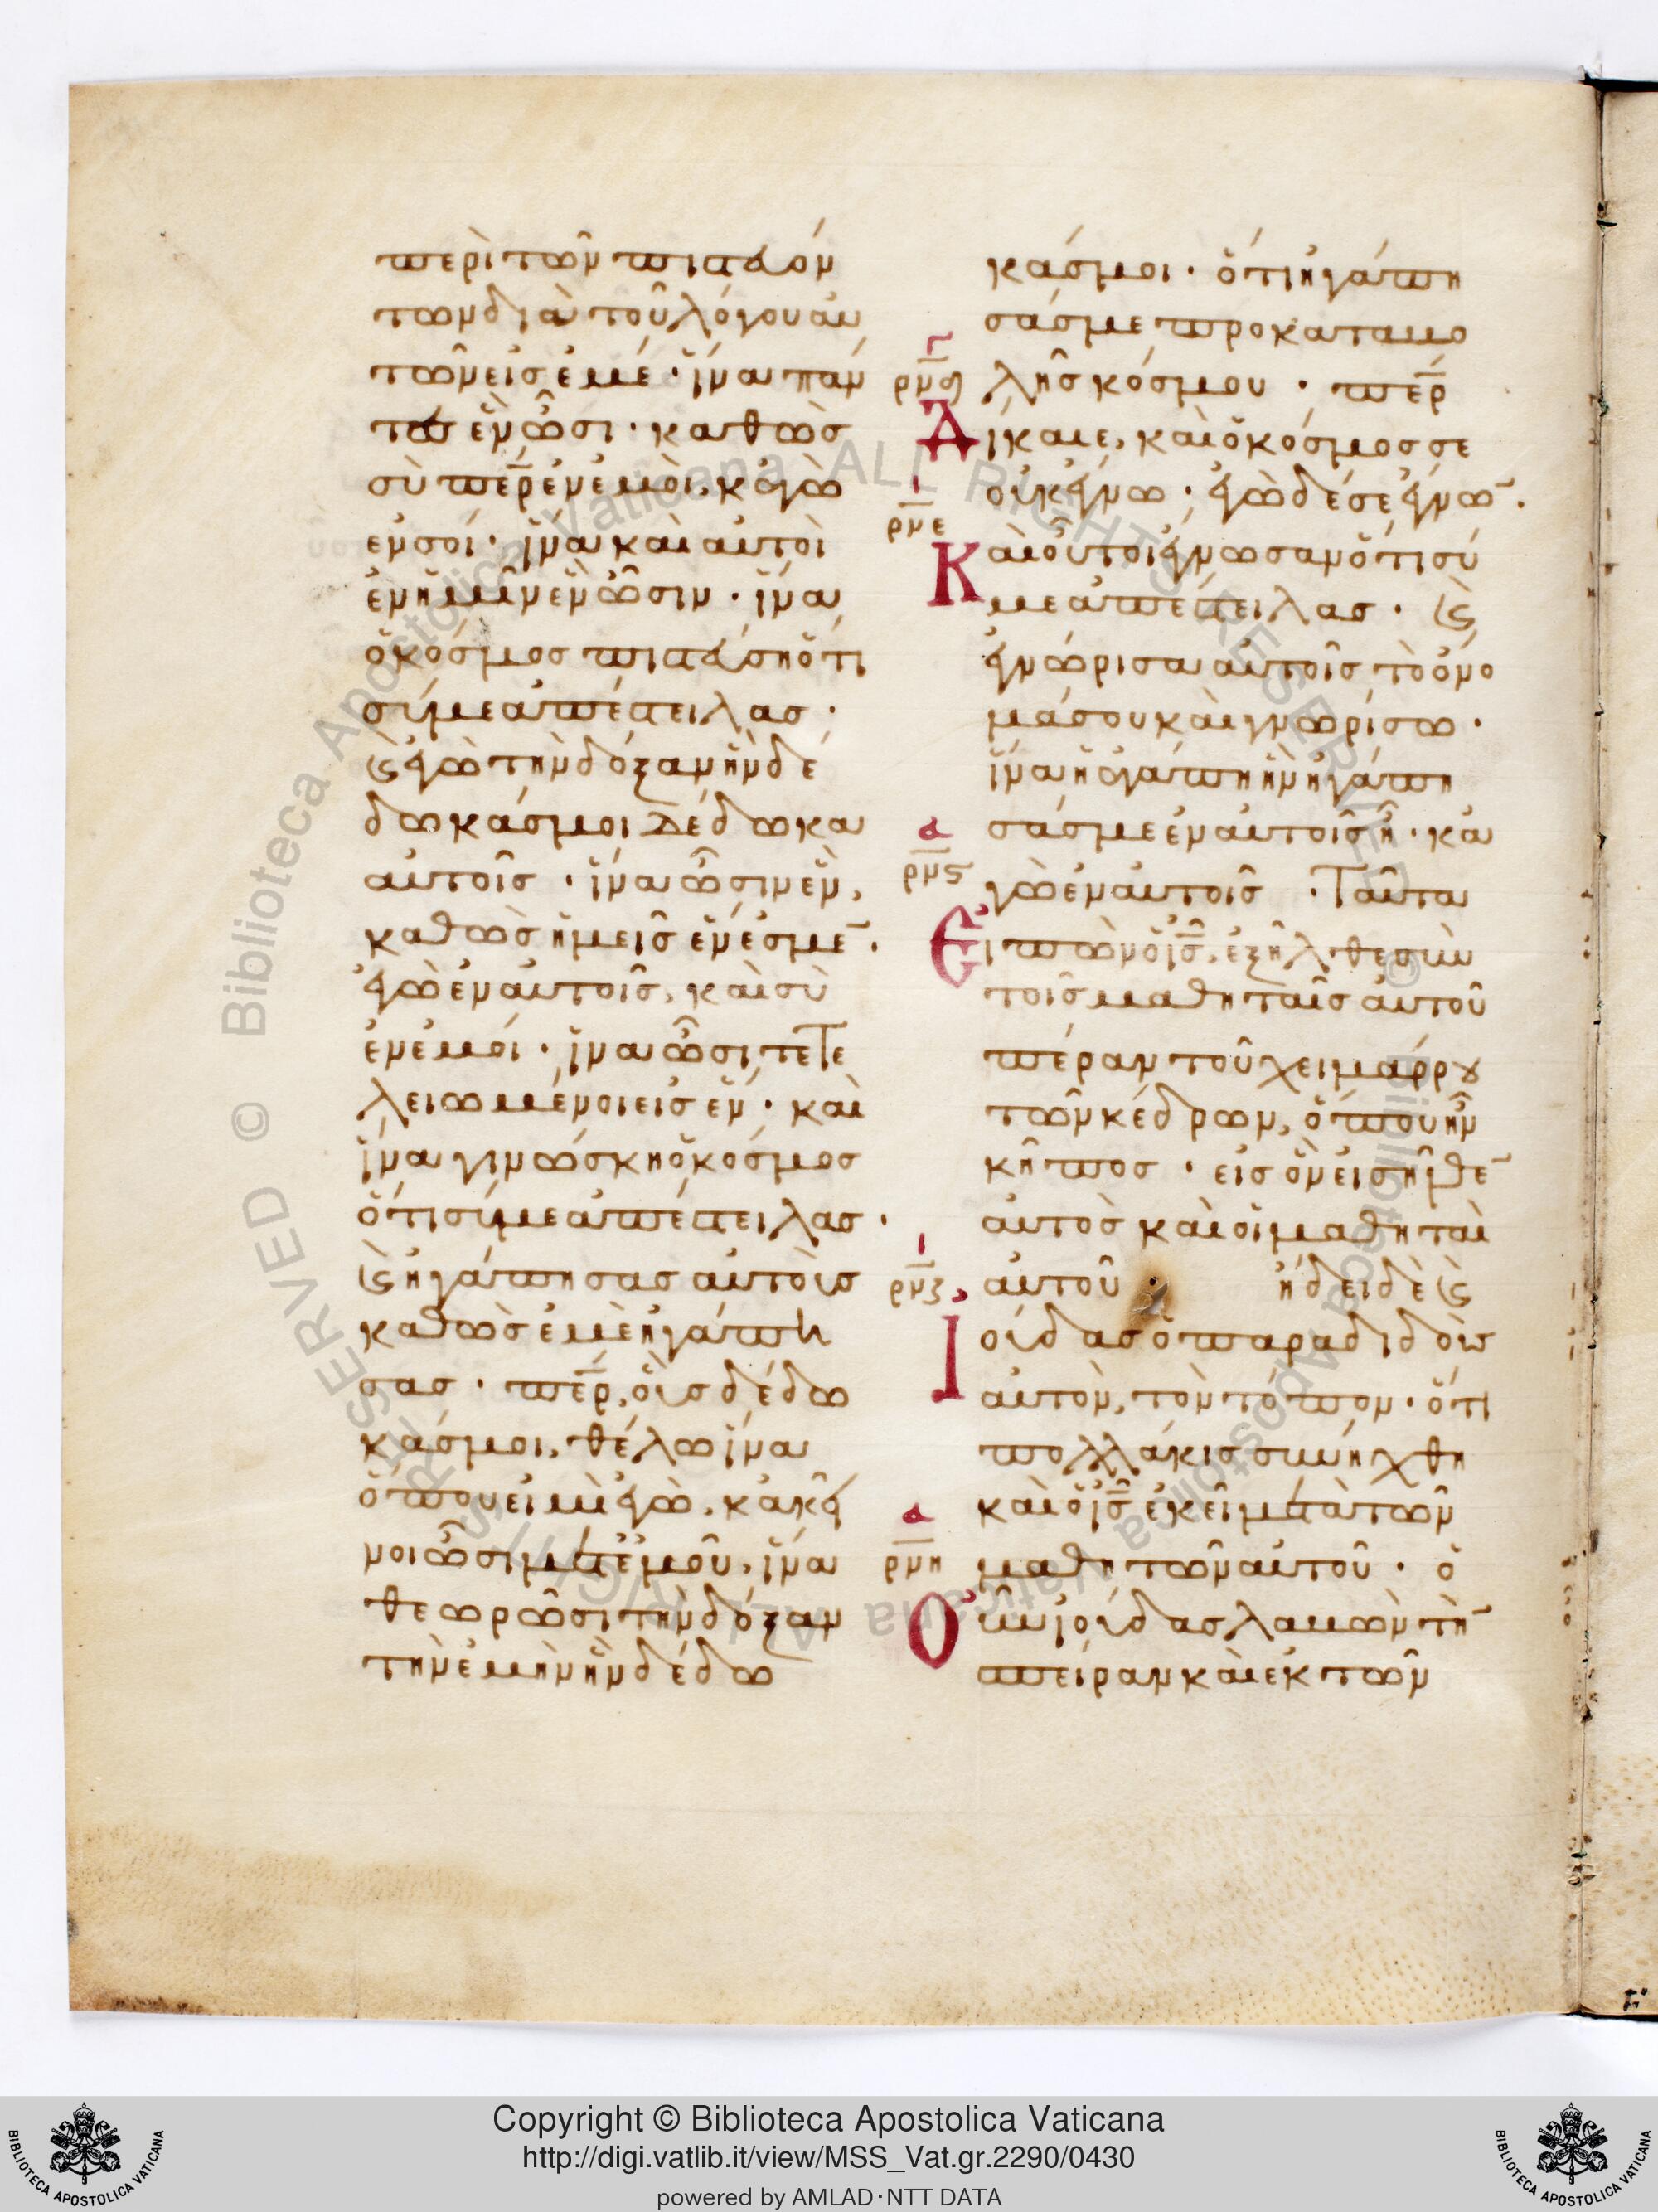 περὶ τῶν πιστευόν
των διὰ τοῦ λόγου αὐ
τῶν εἰς ἐμέ · ἵνα πάν
τες ἓν ὦσι · καθὼς
σὺ πε̅ρ ἐν ἐμοὶ, κἀγὼ
ἐν σοί · ἵνα καὶ αὐτοὶ
ἐν ἡμῖν ἓν ὦσιν · ἵνα
ὁ κόσμος πιστεύσῃ ὅτι
σύ με ἀπέστειλας ·
ϗ ἐγὼ τὴν δόξαν ἣν δέ
δωκάς μοι δέδωκα
αὐτοῖς · ἵνα ὦσιν ἓν,
καθὼς ἡμεῖς ἕν ἐσμε̅ ·
ἐγὼ ἐν αὐτοῖς, καὶ σὺ
ἐν ἐμοί · ἵνα ὦσι τετε
λειωμένοι εἰς ἕν · καὶ
ἵνα γινώσκῃ ὁ κόσμος
ὅτι σύ με ἀπέστειλας ·
ϗ ἠγάπησας αὐτοὺς
καθὼς ἐμὲ ἠγάπη
σας · πε̅ρ, οὓς δέδω
κάς μοι, θέλω ἵνα
ὅπου εἰμὶ ἐγὼ, κἀκεῖ
νοι ὦσι μετ ἐμοῦ, ἵνα
θεωρῶσι τὴν δόξαν
τὴν ἐμὴν ἣν δέδω
κάς μοι · ὅτι ἠγάπη
σάς με προ καταβο
γ
ρμδ λῆς κόσμου · πε̅ρ
Δίκαιε, καὶ ὁ κόσμος σε
οὐκ ἔγνω · ἐγὼ δέ σε ἔγνω̅ ·
ι
ρμε
Καὶ οὗτοι ἔγνωσαν ὅτι σύ
με ἀπέστειλας · ϗ
ἐγνώρισα αὐτοῖς τὸ ὄνο
μά σου καὶ γνωρίσω ·
ἵνα ἡ ἀγάπη ἣν ἠγάπη
α
σάς με ἐν αὐτοῖς ᾖ · κἀ
ρμς γὼ ἐν αὐτοῖς · Ταῦτα
Εἰπὼν ὁ ι̅ς̅, ἐξῆλθε σὺν
τοῖς μαθηταῖς αὐτοῦ
πέραν τοῦ χειμάρρου
τῶν κέδρων, ὅπου ἦν
κῆπος · εἰς ὃν εἰσῆλθε̅
αὐτὸς καὶ οἱ μαθηταὶ
ι
ρμζ αὐτοῦ · ἤδει δὲ ϗ
Ἰούδας ὁ παραδιδοὺς
αὐτὸν, τὸν τόπον · ὅτι
πολλάκις συνήχθη
καὶ ὁ ι̅ς̅ ἐκεῖ μετὰ τῶν
α
ρμη μαθητῶν αὐτοῦ · ὁ
Οὖν ἰούδας λαβὼν τὴ̅
σπεῖραν καὶ ἐκ τῶν
© Biblioteca Apostolica Vaticana ALL RIGHTS RESERVED
© Biblioteca Apostolica Vaticana ALL RIGHTS RESERVED
Copyright © Biblioteca Apostolica Vaticana
http://digi.vatlib.it/view/MSS_Vat.gr.2290/0430
powered by AMLAD·NTT DATA
BIBLIOTECA APOSTOLICA VATICANA
BIBLIOTECA APOSTOLICA VATICANA